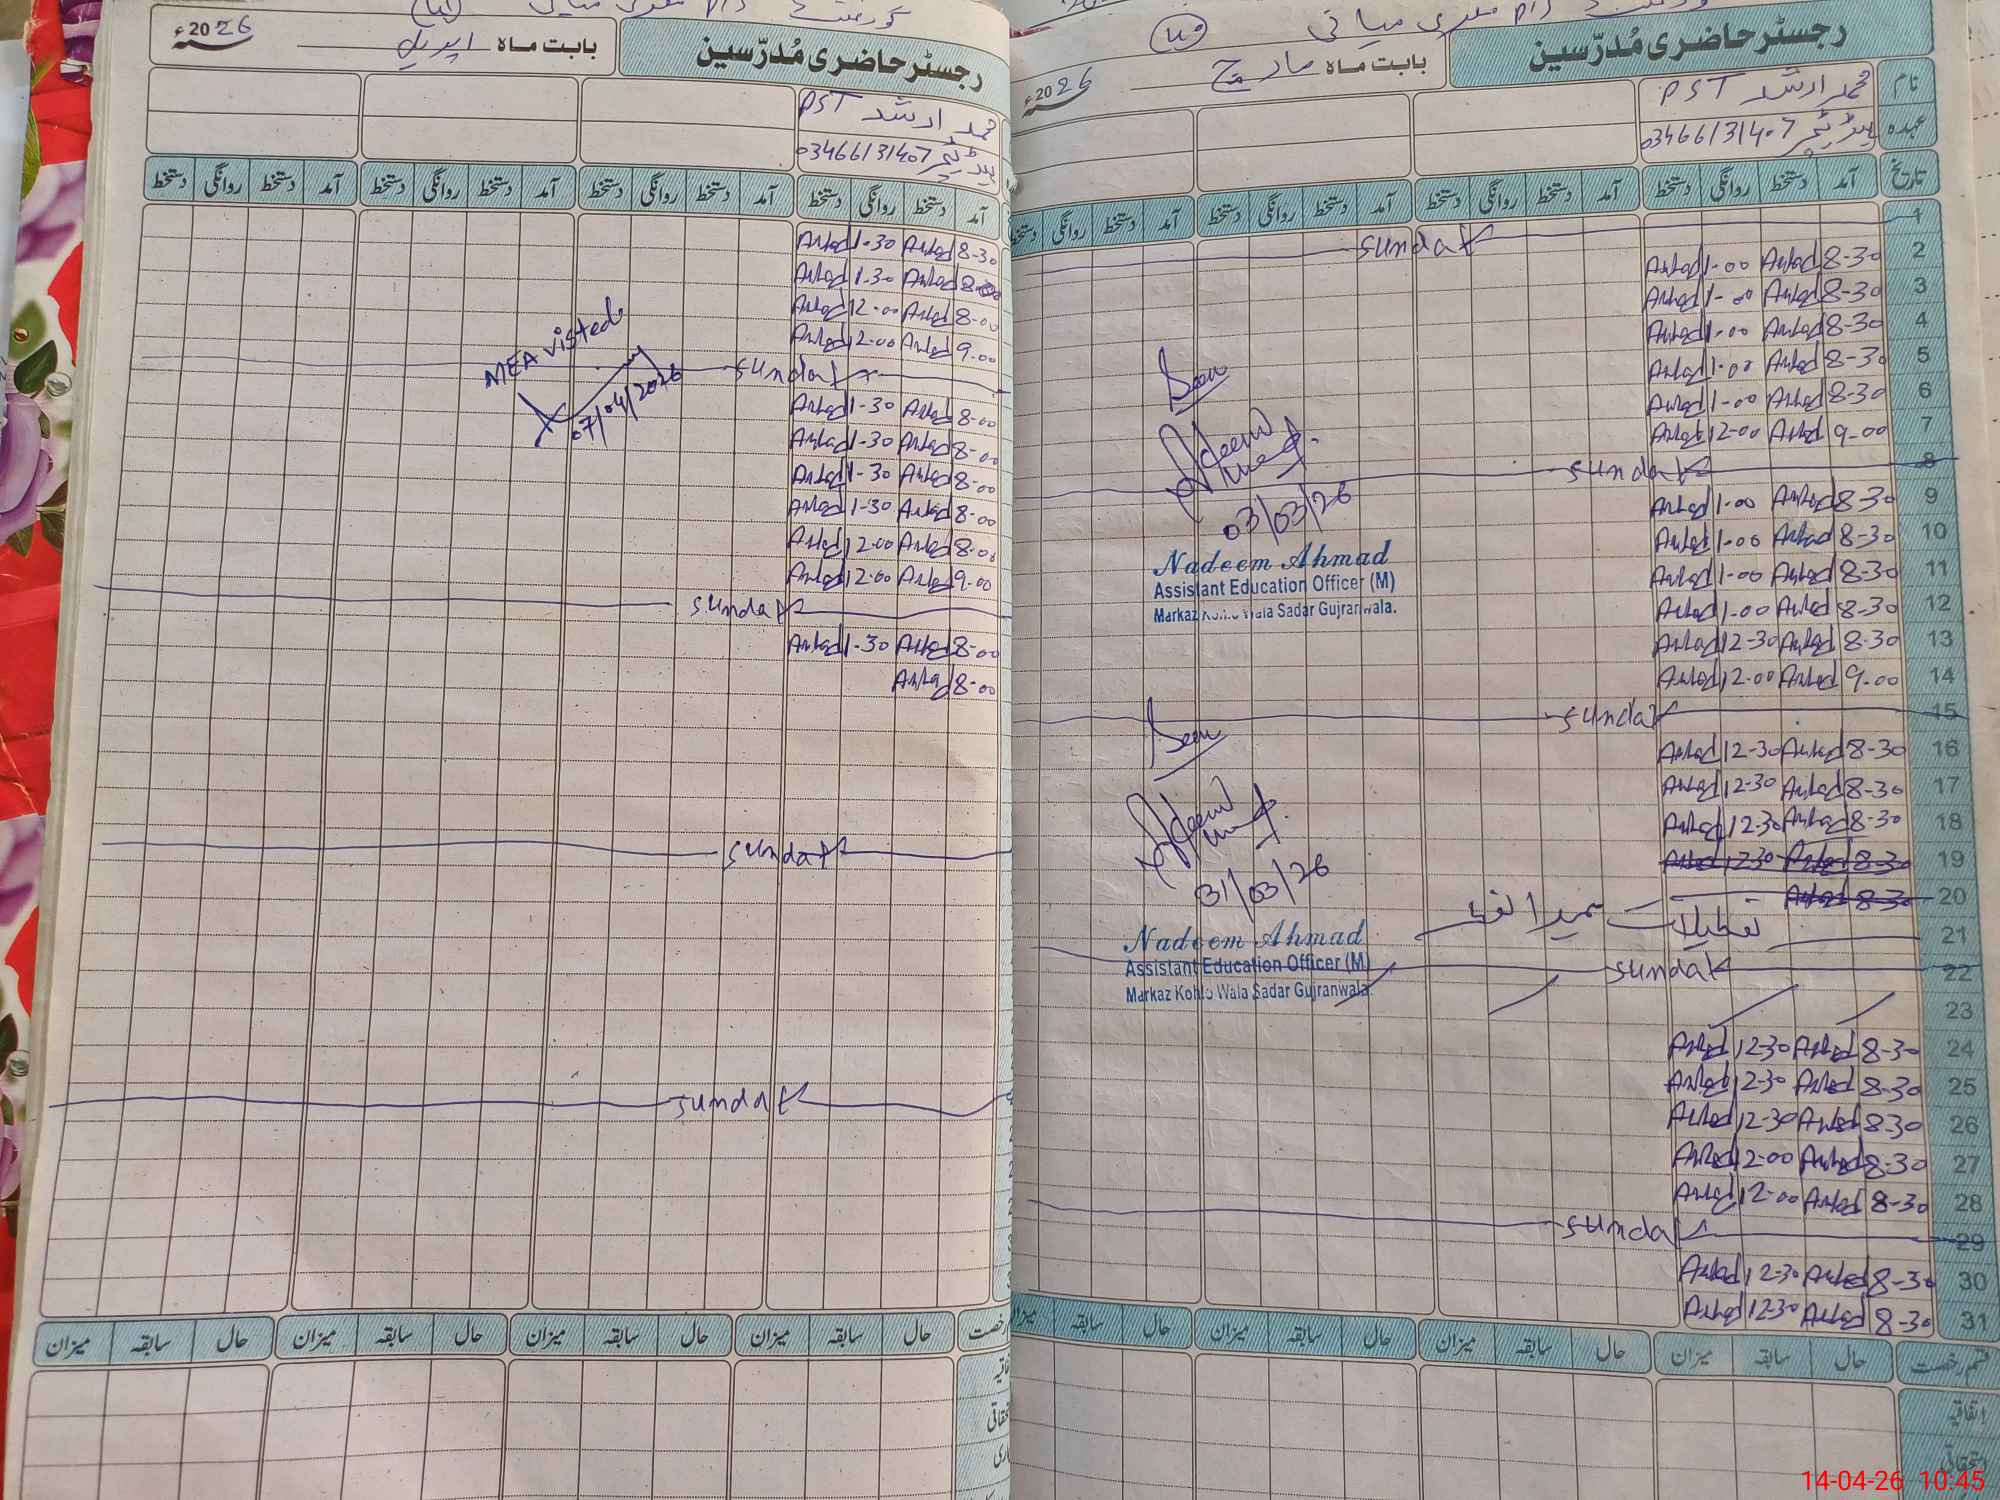 رجسٹر حاضری مُدرّسین
بابت ماہ مارچ 2026ء
نام
محمد ارشد PST
عہدہ
ہیڈ ٹیچر 03466131407
تاریخ آمد دستخط روانگی دستخط آمد دستخط روانگی دستخط آمد دستخط روانگی دستخط آمد دستخط روانگی دستخط
1 sunday
2 8-30 Arshad 1-00 Arshad
3 8-30 Arshad 1-00 Arshad
4 8-30 Arshad 1-00 Arshad
5 8-30 Arshad 1-00 Arshad
6 8-30 Arshad 1-00 Arshad
7 9-00 Arshad 12-00 Arshad
8 sunday
9 8-30 Arshad 1-00 Arshad
10 8-30 Arshad 1-00 Arshad
11 8-30 Arshad 1-00 Arshad
12 8-30 Arshad 1-00 Arshad
13 8-30 Arshad 12-30 Arshad
14 9-00 Arshad 12-00 Arshad
15 sunday
16 8-30 Arshad 12-30 Arshad
17 8-30 Arshad 12-30 Arshad
18 8-30 Arshad 12-30 Arshad
19 8-30 Arshad 12-30 Arshad
20 8-30 Arshad
21 تعطیلات عید الفطر
22 sunday
23
24 8-30 Arshad 12-30 Arshad
25 8-30 Arshad 12-30 Arshad
26 8-30 Arshad 12-30 Arshad
27 8-30 Arshad 12-00 Arshad
28 8-30 Arshad 12-00 Arshad
29 sunday
30 8-30 Arshad 12-30 Arshad
31 8-30 Arshad 12-30 Arshad
Seen
03/03/26
Nadeem Ahmad
Assistant Education Officer (M)
Markaz Kohlo Wala Sadar Gujranwala.
Seen
31/03/26
Nadeem Ahmad
Assistant Education Officer (M)
Markaz Kohlo Wala Sadar Gujranwala.
قسم رخصت حال سابقہ میزان حال سابقہ میزان حال سابقہ میزان حال سابقہ میزان
اتفاقیہ
استحقاقی
رجسٹر حاضری مُدرّسین
بابت ماہ اپریل 2026ء
محمد ارشد PST
ہیڈ ٹیچر 03466131407
آمد دستخط روانگی دستخط آمد دستخط روانگی دستخط آمد دستخط روانگی دستخط آمد دستخط روانگی دستخط
8-30 Arshad 1-30 Arshad
Arshad 1-30 Arshad
8-00 Arshad 12-00 Arshad
9-00 Arshad 12-00 Arshad
sunday
8-00 Arshad 1-30 Arshad
8-00 Arshad 1-30 Arshad
8-00 Arshad 1-30 Arshad
8-00 Arshad 1-30 Arshad
8-00 Arshad 12-00 Arshad
9-00 Arshad 12-00 Arshad
sunday
8-00 Arshad 1-30 Arshad
8-00 Arshad
sunday
sunday
MEA visted
07/04/2026
رخصت حال سابقہ میزان حال سابقہ میزان حال سابقہ میزان حال سابقہ میزان
14-04-26 10:45